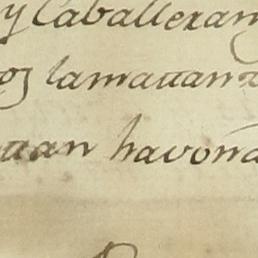 y Caballeran
os lamauan
uan havona